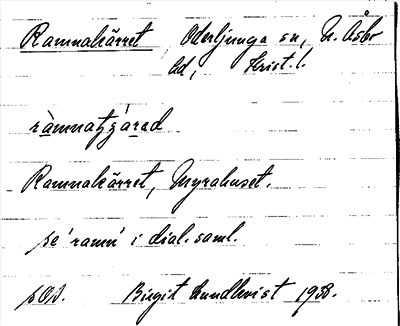 Ramnakärret, Oderljunga sn, N. Åsbo
hd, Krist. l.
Ramnakärret, Myrahuset.
se 'ramn' i dial. saml.
sOp. Birgit Lundkvist 1938.